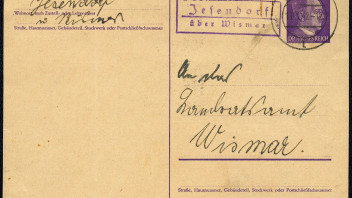 Jesendorf
b. Wismar
Wohnort, auch Zustell- oder Leitpostamt
Straße, Hausnummer, Gebäudeteil, Stockwerk oder Postschließfachnummer
Jesendorf
über Wismar
DEUTSCHES REICH
An das
Landratsamt
Wismar.
Straße, Hausnummer, Gebäudeteil, Stockwerk oder Postschließfachnummer